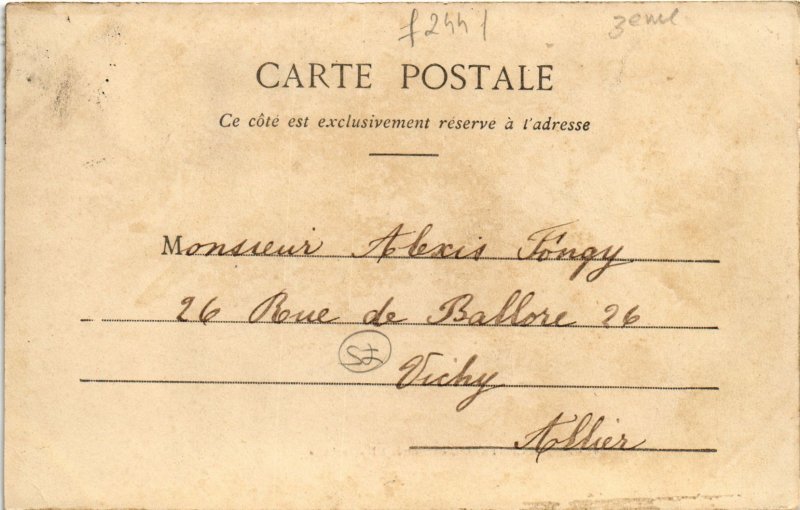 f 2441
3eme
CARTE POSTALE
Ce côté est exclusivement réservé à l'adresse
Monsieur Alexis Fongy
26 Rue de Ballore 26
Vichy
Allier